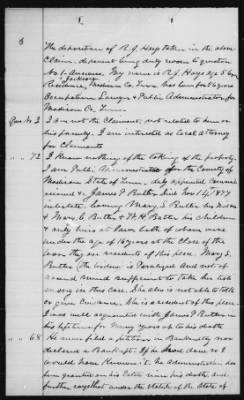 The deposition of R. J. Hays taken in the above
Claim, deponent being duly sworn to question
No 1. Answers. My name is R. J. Hays Age 56 years
Residence, Jackson Madison Co. Tenn has been for 36 years
Occupation Lawyer & Public Administrator for
Madison Co. Tenn.
Ques No 2 I am not the Claimant, not related to him or
his family. I am interested as local attorney
for Claimants
" " 72 I know nothing of the taking of the property.
I am Public Administrator for the County of
Madison State of Tenn, duly appointed
& James P Butler died Nov 14, 1877
intestate, leaving Mary S. Butler his widow
& Mary E Butler & W. R. Butler his children
& only heirs at law both of whom were
under the age of 16 years at the close of the
war they are residents of this place. Mary S.
Butler the widow is Paralyzed and not of
sound mind sufficient to take her testi-
mony in this case. She also is not able to talk
or give evidence. She is a resident of this place
I was well acquainted with James P Butler in
his lifetime for many years up to his death
" " 68 He never filed a petition in Bankruptcy nor
declared a Bankrupt. If he had done so I
would have known it. No administration has
been granted on his Estate since his death and
further except under the statute of the State of